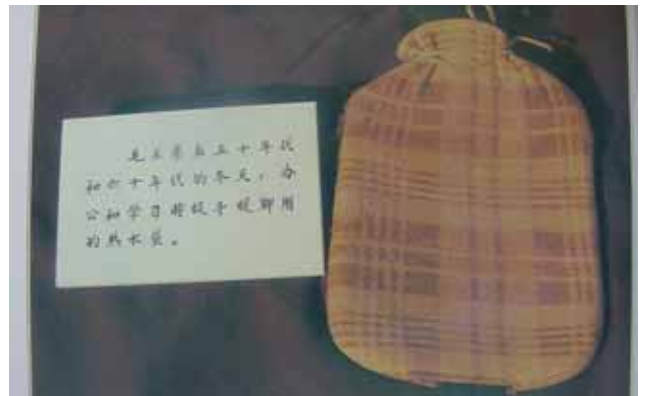 毛主席在五十年代
和六十年代的冬天，办
公和学习时暖手暖脚用
的热水袋。